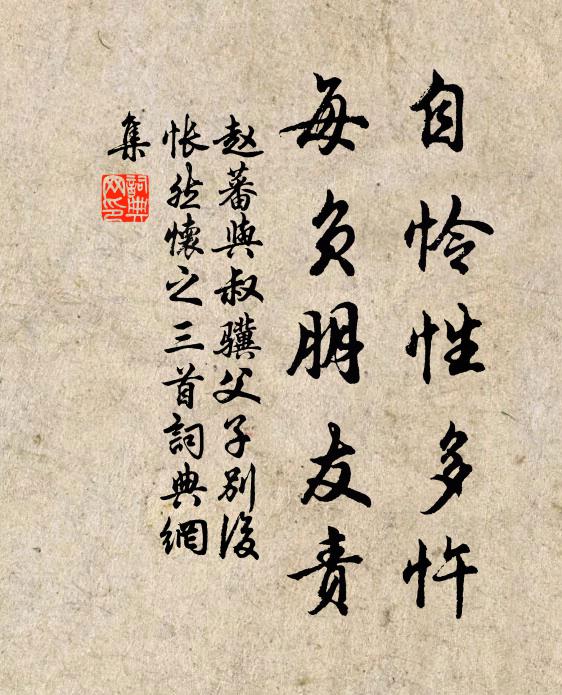 自怜性多忤
每负朋友责
赵蕃與叔骥父子别後
怅然懷之三首詞典網
集
詞典
网印